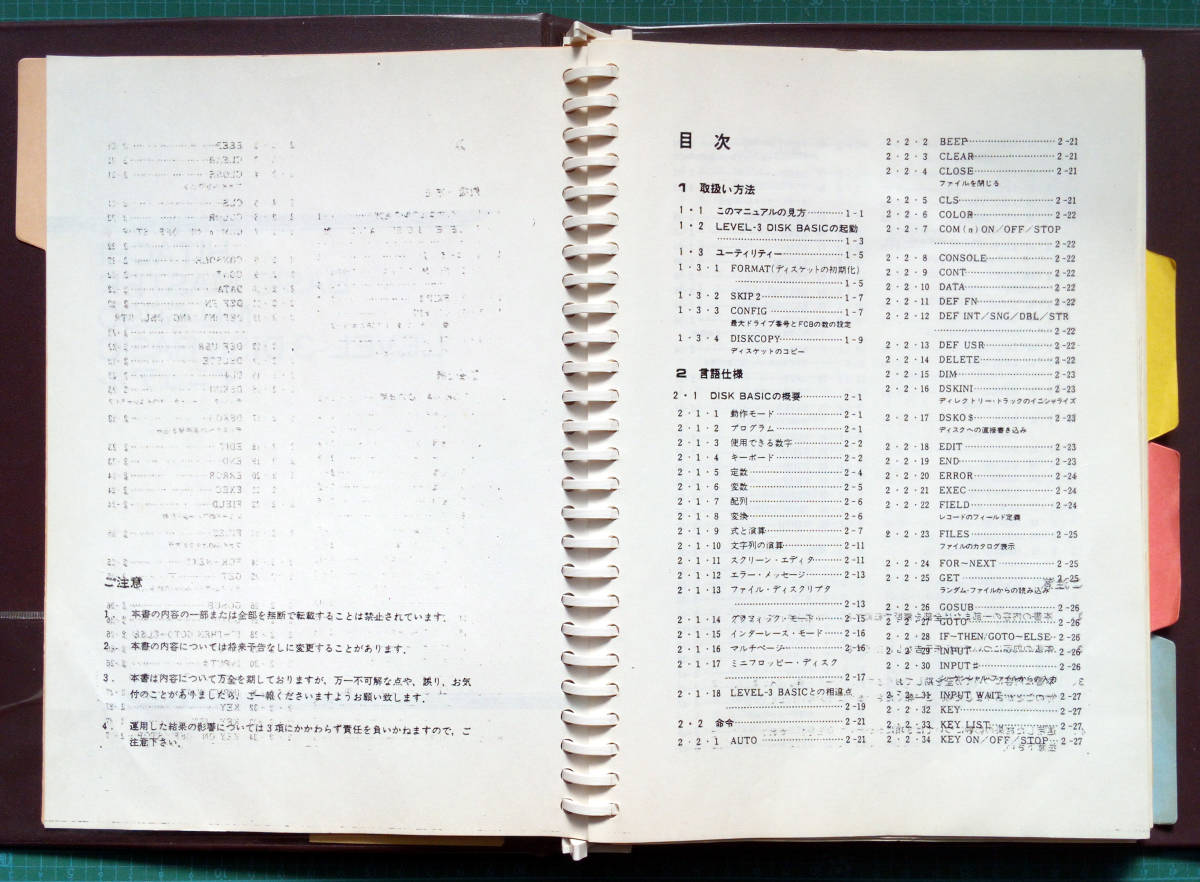 ご注意
1. 本書の内容の一部または全部を無断で転載することは禁止されています。
2. 本書の内容については将来予告なしに変更することがあります。
3. 本書は内容について万全を期しておりますが、万一不可解な点や、誤り、お気
付のことがありましたら、ご一報くださいますようお願い致します。
4. 運用した結果の影響については3項にかかわらず責任を負いかねますので、ご
注意下さい。
目 次
1 取扱い方法
1・1 このマニュアルの見方…………1-1
1・2 LEVEL-3 DISK BASICの起動
……………………………1-3
1・3 ユーティリティー…………………1-5
1・3・1 FORMAT(ディスケットの初期化)
……………………………1-5
1・3・2 SKIP2……………………1-7
1・3・3 CONFIG…………………1-7
最大ドライブ番号とFCBの数の設定
1・3・4 DISKCOPY………………1-9
ディスケットのコピー
2 言語仕様
2・1 DISK BASICの概要…………2-1
2・1・1 動作モード…………………2-1
2・1・2 プログラム…………………2-1
2・1・3 使用できる数字……………2-2
2・1・4 キーボード…………………2-2
2・1・5 定数…………………………2-4
2・1・6 変数…………………………2-5
2・1・7 配列…………………………2-6
2・1・8 変換…………………………2-6
2・1・9 式と演算……………………2-7
2・1・10 文字列の演算……………2-11
2・1・11 スクリーン・エディタ……2-11
2・1・12 エラー・メッセージ………2-13
2・1・13 ファイル・ディスクリプタ
……………………………2-13
2・1・14 グラフィック・モード……2-15
2・1・15 インターレース・モード…2-16
2・1・16 マルチページ……………2-16
2・1・17 ミニフロッピー・ディスク
……………………………2-17
2・1・18 LEVEL-3 BASICとの相違点
……………………………2-19
2・2 命令……………………………2-21
2・2・1 AUTO……………………2-21
2・2・2 BEEP……………………2-21
2・2・3 CLEAR…………………2-21
2・2・4 CLOSE…………………2-21
ファイルを閉じる
2・2・5 CLS………………………2-21
2・2・6 COLOR…………………2-22
2・2・7 COM(n) ON/OFF/STOP
……………………………2-22
2・2・8 CONSOLE………………2-22
2・2・9 CONT……………………2-22
2・2・10 DATA……………………2-22
2・2・11 DEF FN…………………2-22
2・2・12 DEF INT/SNG/DBL/STR
……………………………2-22
2・2・13 DEF USR………………2-22
2・2・14 DELETE…………………2-22
2・2・15 DIM………………………2-23
2・2・16 DSKINI…………………2-23
ディレクトリー・トラックのイニシャライズ
2・2・17 DSKO$…………………2-23
ディスクへの直接書き込み
2・2・18 EDIT……………………2-23
2・2・19 END………………………2-23
2・2・20 ERROR…………………2-24
2・2・21 EXEC……………………2-24
2・2・22 FIELD……………………2-24
レコードのフィールド定義
2・2・23 FILES……………………2-25
ファイルのカタログ表示
2・2・24 FOR~NEXT……………2-25
2・2・25 GET………………………2-25
ランダム・ファイルからの読み込み
2・2・26 GOSUB…………………2-26
2・2・27 GOTO……………………2-26
2・2・28 IF~THEN/GOTO~ELSE…2-26
2・2・29 INPUT……………………2-26
2・2・30 INPUT#…………………2-26
シーケンシャル・ファイルからの入力
2・2・31 INPUT WAIT……………2-27
2・2・32 KEY………………………2-27
2・2・33 KEY LIST………………2-27
2・2・34 KEY ON/OFF/STOP…2-27